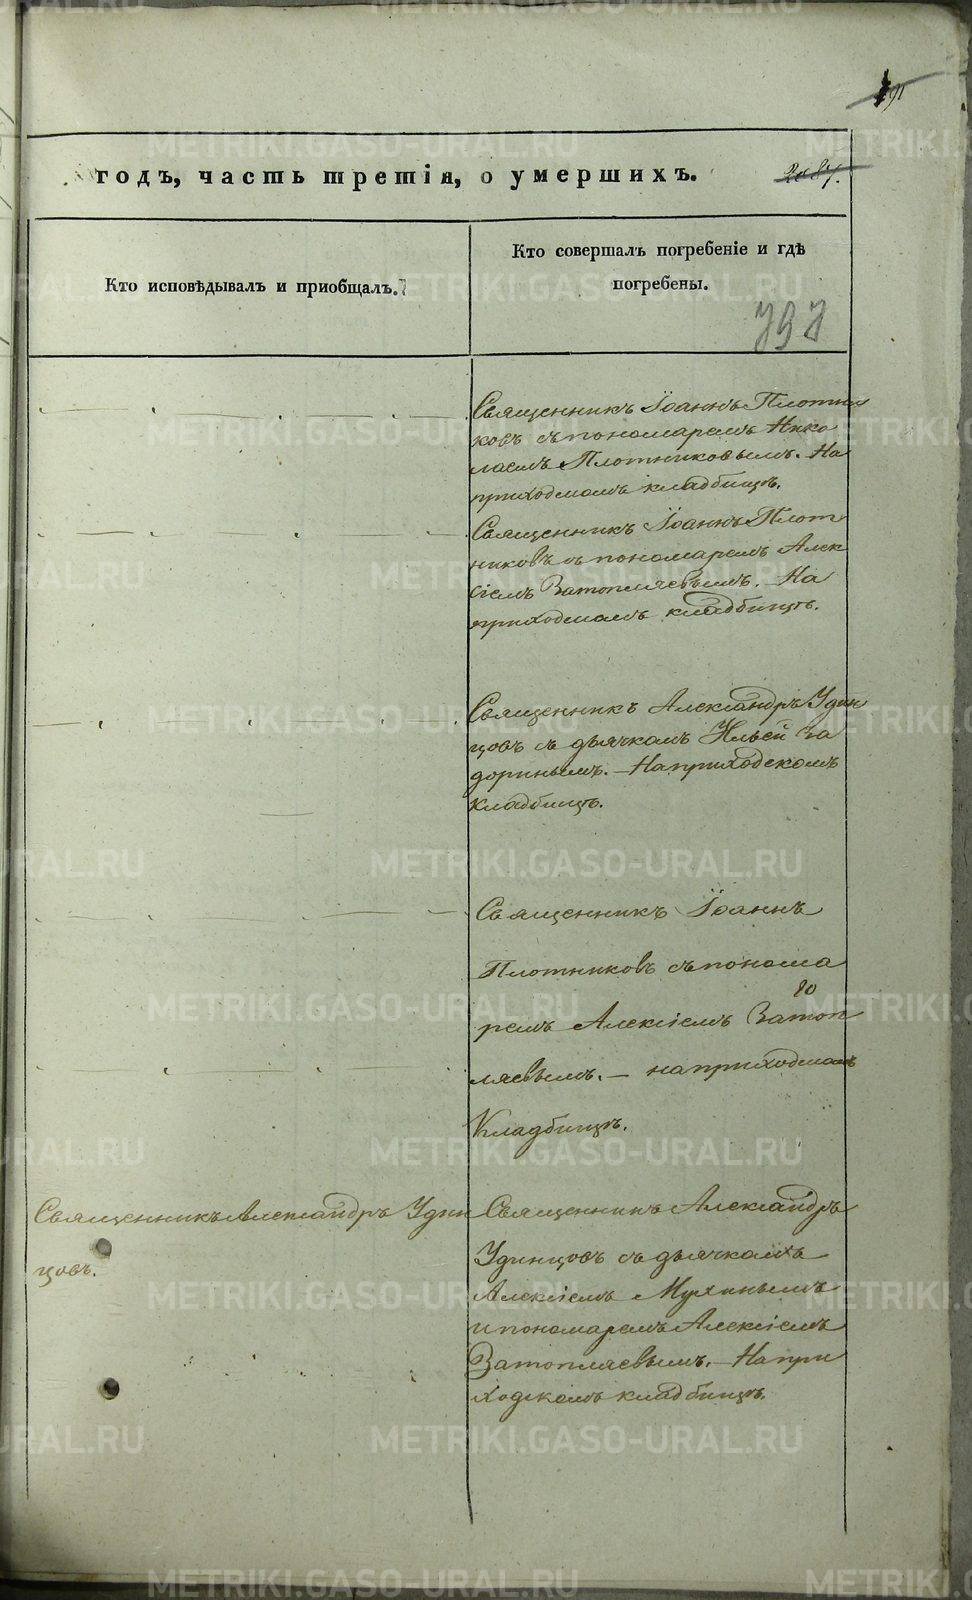 191
годъ, часть третія, о умершихъ.
2087.
Кто исповѣдывалъ и приобщалъ.
Кто совершалъ погребеніе и гдѣ
погребены.
797
Священникъ Іоаннъ Плотни
ковъ съ пономаремъ Нико
лаемъ Плотниковымъ. На
приходскомъ кладбищѣ.
Священникъ Іоаннъ Плот
никовъ съ пономаремъ Алек
сіемъ Затопляевымъ. На
приходскомъ кладбищѣ.
Священникъ Александръ Удин
цовъ съ дьячкомъ Ильей За
доринымъ. На приходскомъ
кладбищѣ.
Священникъ Іоаннъ
Плотниковъ съ понома
ремъ Алексіемъ Затоп
ляевымъ. — на приходскомъ
кладбищѣ.
Священникъ Александръ Удин
цовъ.
Священникъ Александръ
Удинцовъ съ дьячкомъ
Алексіемъ Мухинымъ
и пономаремъ Алексіемъ
Затопляевымъ. — На при
ходскомъ кладбищѣ.
METRIKI.GASO-URAL.RU